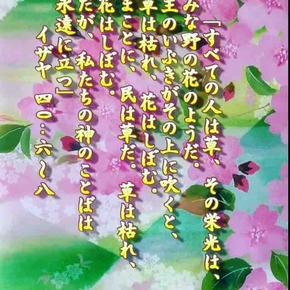 「すべての人は草、その栄光は、
みな野の花のようだ。
主のいぶきがその上に吹くと、
草は枯れ、花はしぼむ。
まことに、民は草だ。草は枯れ、
花はしぼむ。
だが、私たちの神のことばは
永遠に立つ」
イザヤ 四〇:六〜八